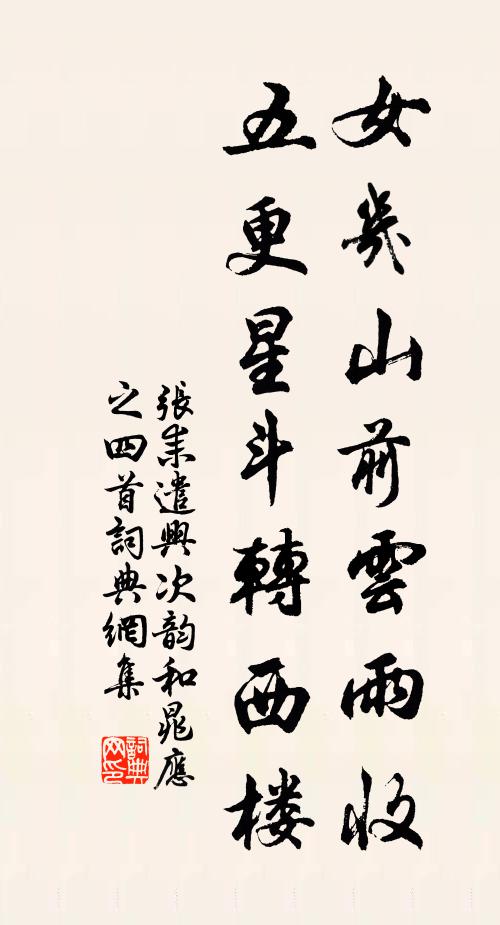 女幾山前雲雨收
五更星斗轉西楼
張耒遣興次韵和晁應
之四首詞典網集
詞典
网印